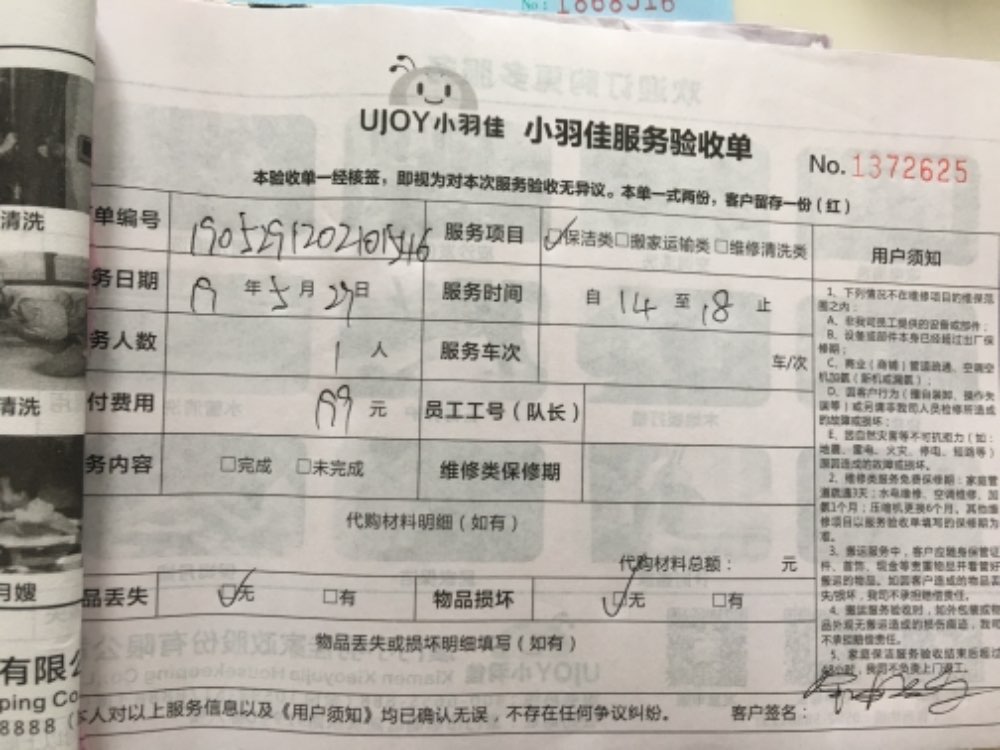 No: 1868516
UJOY小羽佳 小羽佳服务验收单
No. 1372625
本验收单一经核签，即视为对本次服务验收无异议。本单一式两份，客户留存一份（红）
单编号
服务项目 保洁类□搬家运输类□维修清洗类
用户须知
务日期 19 年 5 月 29 日
服务时间 自 14 至 18 止
务人数 1 人
服务车次 车/次
付费用 199 元
员工工号（队长）
务内容 □完成 □未完成
维修类保修期
代购材料明细（如有）
代购材料总额： 元
品丢失 □无 □有
物品损坏 □无 □有
物品丢失或损坏明细填写（如有）
本人对以上服务信息以及《用户须知》均已确认无误，不存在任何争议纠纷。 客户签名：
1、下列情况不在维修项目的维保范
围之内：
A、非我司员工提供的设备或部件；
B、设备或部件本身已经超过出厂保
修期；
C、商业（商铺）管道疏通、空调空
机加氨（新机或漏氨）；
D、因客户行为（擅自装卸、操作失
误等）或另请非我司人员检修所造成
的故障或损坏；
E、因自然灾害等不可抗拒力（如：
地震、雷电、火灾、停电、短路等）
原因造成的故障或损坏。
2、维修类服务免费保修期：家庭管
道疏通3天；水电维修、空调维修、加
氨1个月；压缩机更换6个月。其他维
修项目以服务验收单填写的保修期为
准。
3、搬运服务中，客户应随身保管证
件、首饰、现金等贵重物品并看管好
搬运的物品。如因客户造成的物品丢
失/损坏，我司不承担赔偿责任。
4、搬运服务验收时，如外包装或物
品外观无搬运造成的损伤痕迹，我司
不承担赔偿责任。
5、家庭保洁服务验收结束后超过
48小时，我司不负责上门返工。
清洗
清洗
月嫂
有限公
ping Co
8888